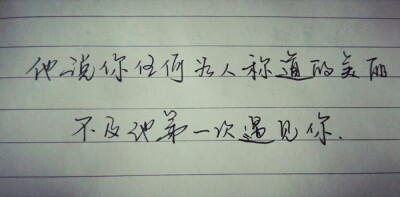 他说你任何为人称道的美丽
不及他第一次遇见你.